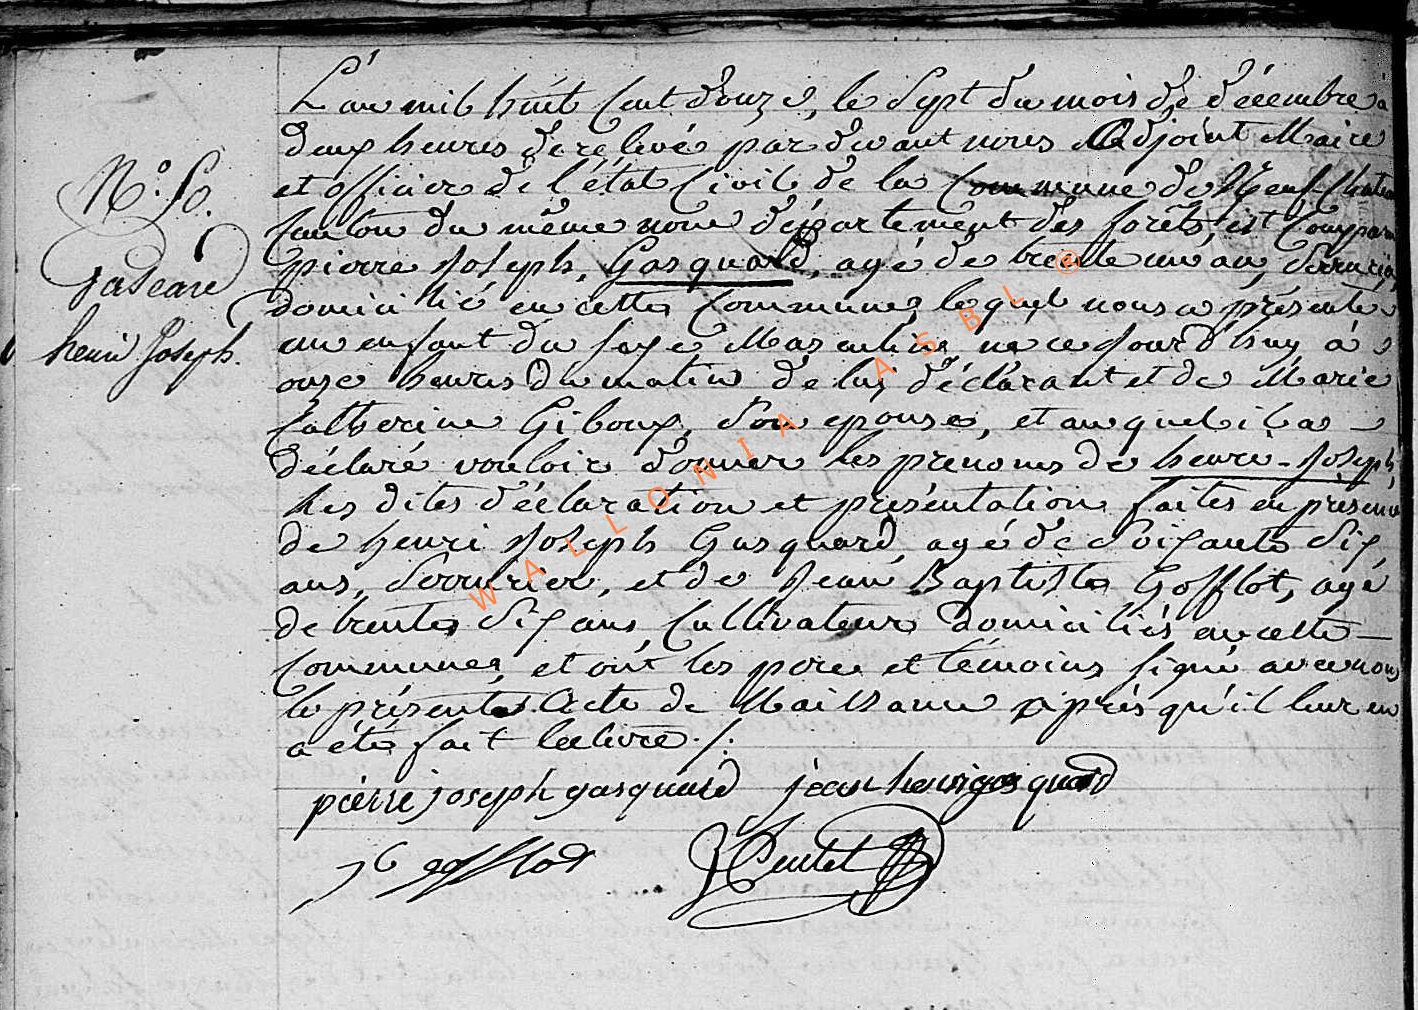 N.° 50.
Gascard
henri Joseph.
L'an mil huit Cent douze, le Sept du mois de décembre à
deux heures de relevé par devant nous Adjoint Maire
et officier de l'état Civil de la Commune de Neuf-Chateau
Canton du même nom département des forêts, est Comparu
pierre Joseph Gasquard, agé de trente un an, Serrurier,
domicilié en cette Commune, lequel nous a présenté
un enfant du sexe Masculin né ce jourd'huy à
onze heures du matin de lui déclarant et de Marie
Catherine Giboux, Son epouse, et auquel il a
déclaré vouloir donner les prenoms de henri-Joseph,
les dites déclaration et présentation faites en présence
de henri Joseph Gasquard, agé de Soixante Six
ans, Serrurier, et de Jean Baptiste Gofflot, agé
de trente Six ans, Cultivateur domiciliés en cette
Commune, et ont les pere et témoins Signé avec nous
le présente Acte de Naissance après qu'il leur en
a été fait lecture ./.
pierre joseph gasquard jean henri gasquard
jb gofflot
WALLONIA ASBL ®